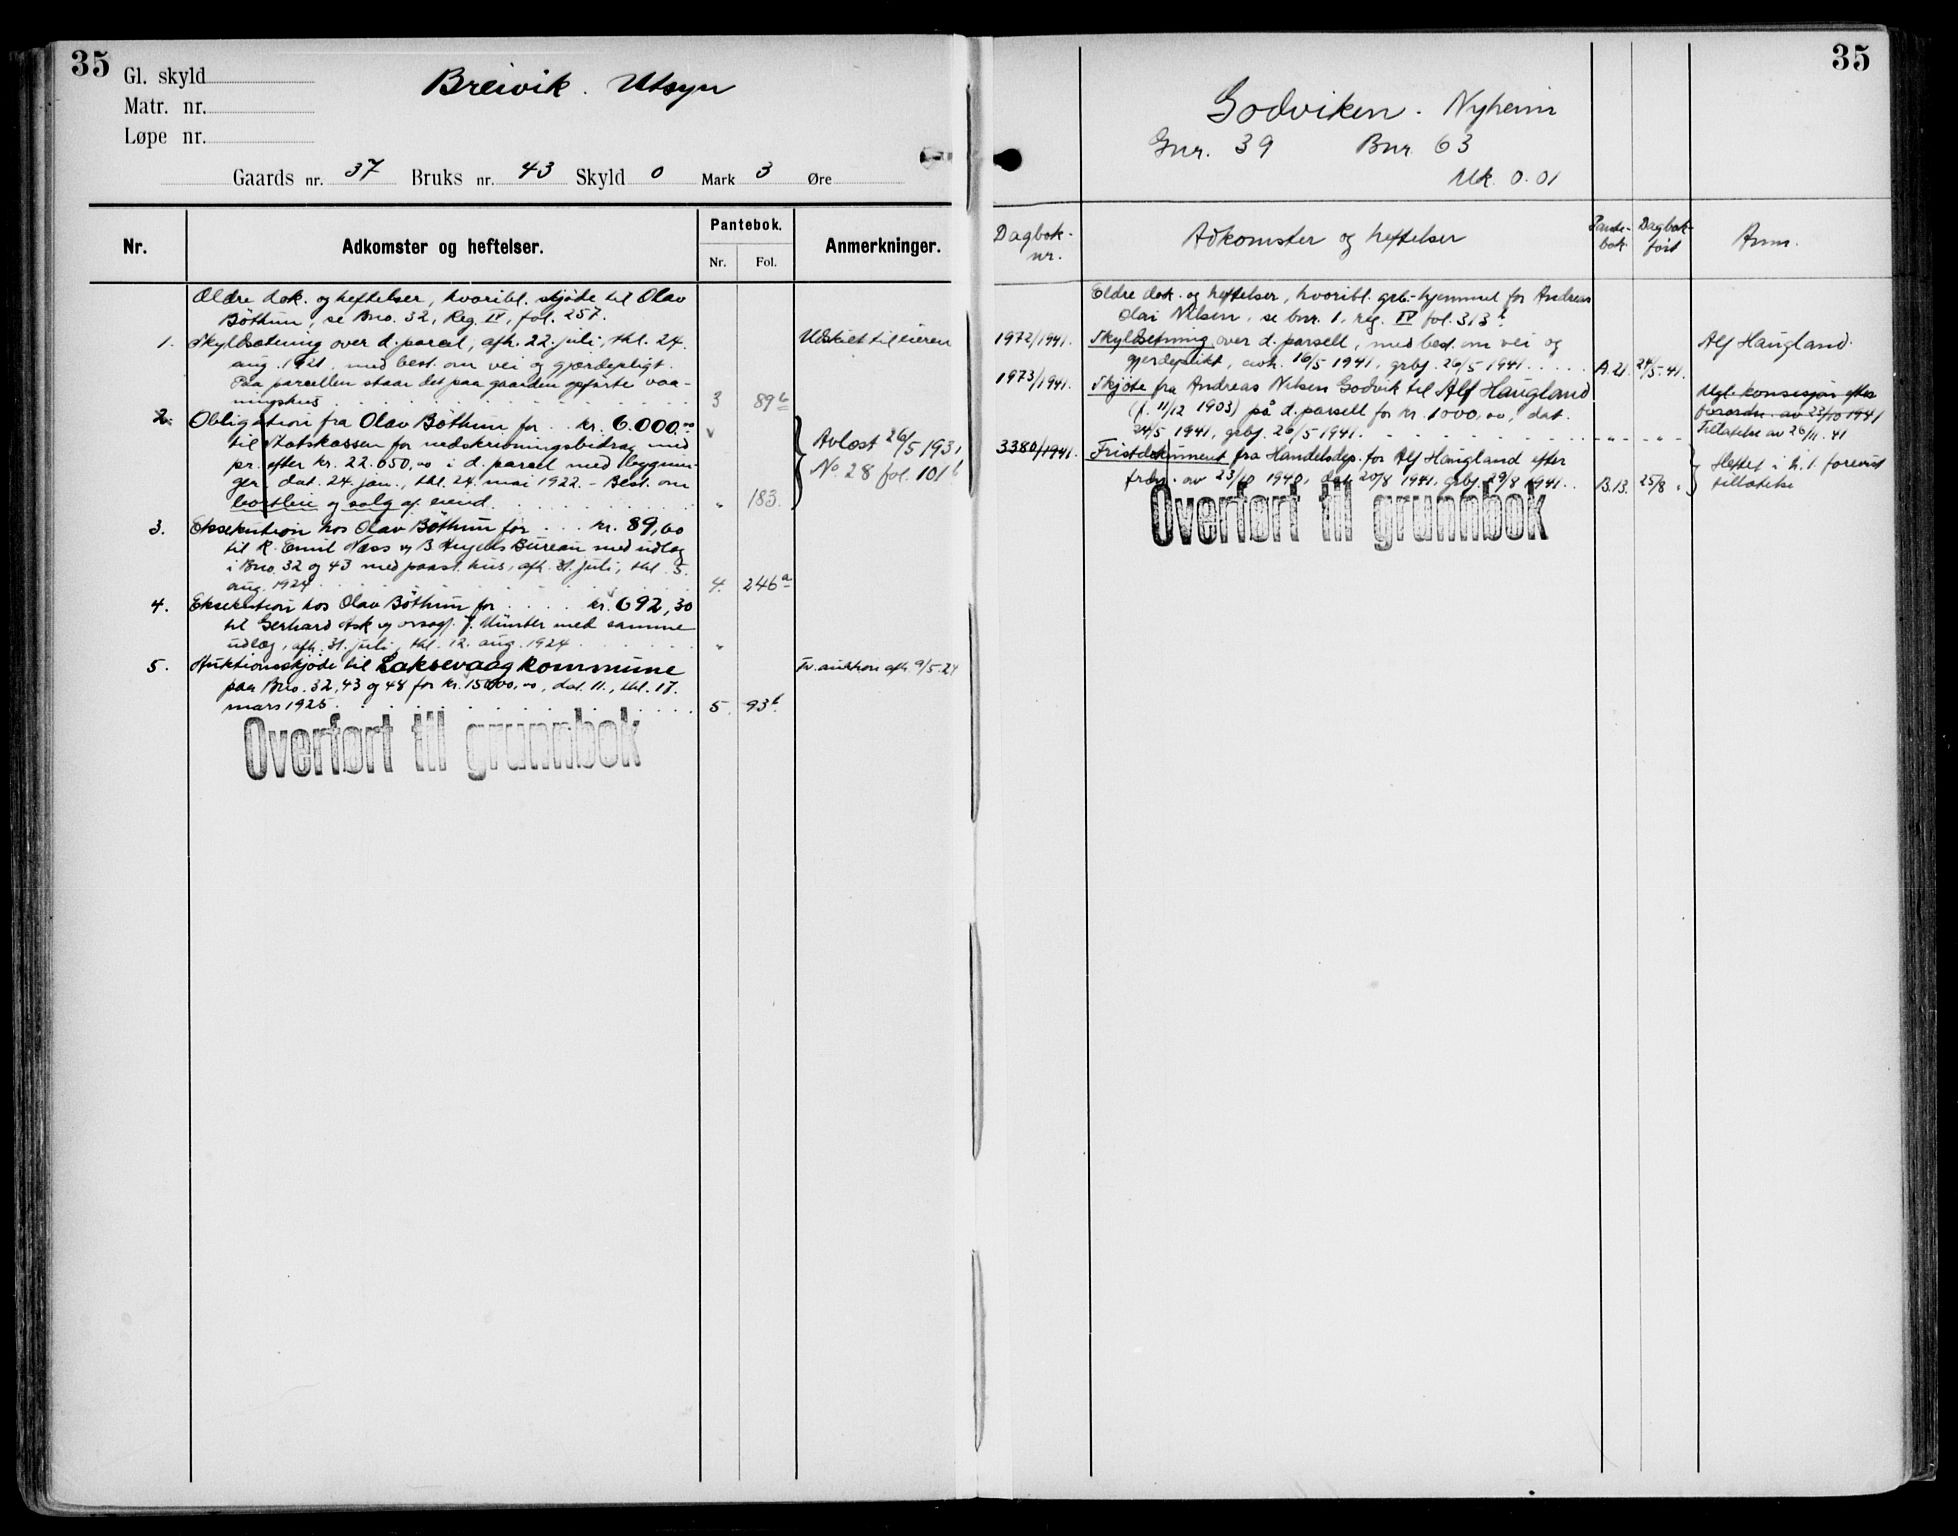 35
Gl. skyld
Matr. nr.
Løpe nr.
Breivik. Utsyn
Gaards nr. 37 Bruks nr. 43 Skyld 0 Mark 3 Øre
Nr.
Adkomster og heftelser.
Pantebok.
Nr. Fol.
Anmerkninger.
Ældre dok. og heftelser, hvoribl. skjøde til Olav
Böthun, se Bno. 32, Reg. IV, fol. 257.
1. Skyldsætning over d. parcel, afh. 22. juli, thl. 24. Utskilt til eieren
aug. 1921, med best. om vei og gjærdepligt.
Paa parcellen staar det paa gaarden opførte vaa-
ningshus 3 89b
2. Obligation fra Olav Böthun for kr. 6.000.00 "
til Statskassen for nedskrivningsbidrag med
pr. efter kr. 22.650,00 i d. parcel med bygnin-
ger dat. 24. jan., thl. 24. mai 1922. - Best. om
bortleie og salg af eiend. " 183.
Avløst 26/5 1931
No 28 fol. 101b
3. Eksekution hos Olav Böthun for kr. 89,60
til R. Emil Næss og B. Bureau med udlæg
i Bno. 32 og 43 med paast. hus, afh. 31. juli, thl. 5.
aug. 1924 4. 246a
4. Eksekution hos Olav Böthun for kr. 692,30
til Gerhard Ask og orsagf. J. Münster med samme
udlæg, afh. 31. juli, thl. 12. aug. 1924 "
5. Auktionsskjøde til Laksevaag kommune Tv. auktion afh. 9/5.24
paa Bno. 32, 43 og 48 for kr. 15000,00, dat. 11., thl. 17.
mars 1925 5. 93b
Overført til grunnbok
35
Godviken. Nyheim
Gnr. 39 Bnr. 63
Mk. 0.01
Dagbok-
nr.
Adkomster og heftelser
Pante-
bok
Dagbok-
ført
Anm.
Eldre dok. og heftelser, hvoribl. grb.-hjemmel for Andreas
Olai Nilsen, se bnr. 1, reg. IV fol. 313b
1972/1941. Skyldsetning over d. parsell, med best. om vei og Alf Haugland.
gjerdeplikt, avh. 16/5 1941, grbj. 26/5 1941 A.21. 24/5.41.
1973/1941. Skjøte fra Andreas Nilsen Godvik til Alf Haugland
(f. 11/12 1903) på d. parsell for kr. 1000,00, dat.
24/5 1941, grbj. 26/5 1941. " " " "
Ugl. konsesjon efter
forordn. av 23/10 1941
Tillatelse av 26/11.41
3380/1941. Fristdokument fra Handelsdep. for Alf Haugland efter
frdn. av 23/10 1940, dat. 20/8 1941, grbj. 29/8 1941. B.13. 25/8 "
Slettet i h. t. forevist
tillatelse
Overført til grunnbok